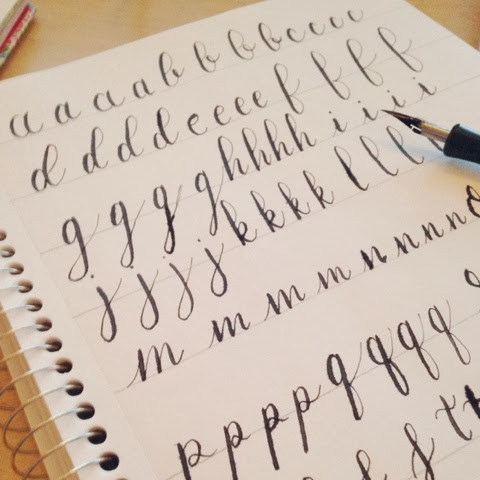 a a a a b b b b c c c c
d d d d e e e e f f f f
g g g g h h h h i i i i
j j j j k k k k l l l
m m m m n n n n o
p p p p q q q q